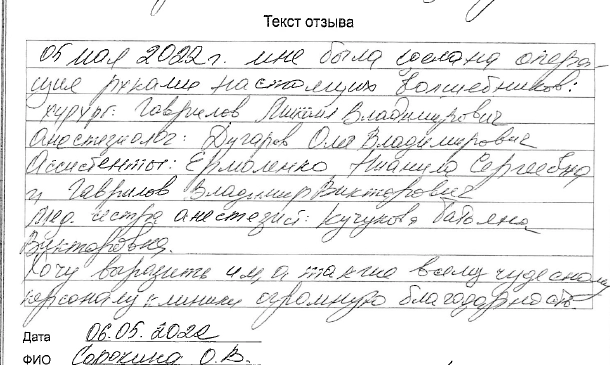 Текст отзыва
05 мая 2022г. мне была сделана опера-
ция руками настоящих волшебников:
хирург: Гаврилов Михаил Владимирович
Анестезиолог: Дугаров Олег Владимирович
Ассистенты: Ермоленко Сергеевна
и Гаврилов Владимир Викторович
Мед. сестра анестезист: Кучукова Татьяна
Викторовна.
Хочу выразить им, а также всему чудесному
персоналу клиники огромную благодарность.
Дата 06.05.2022
ФИО Сорокина О.В.